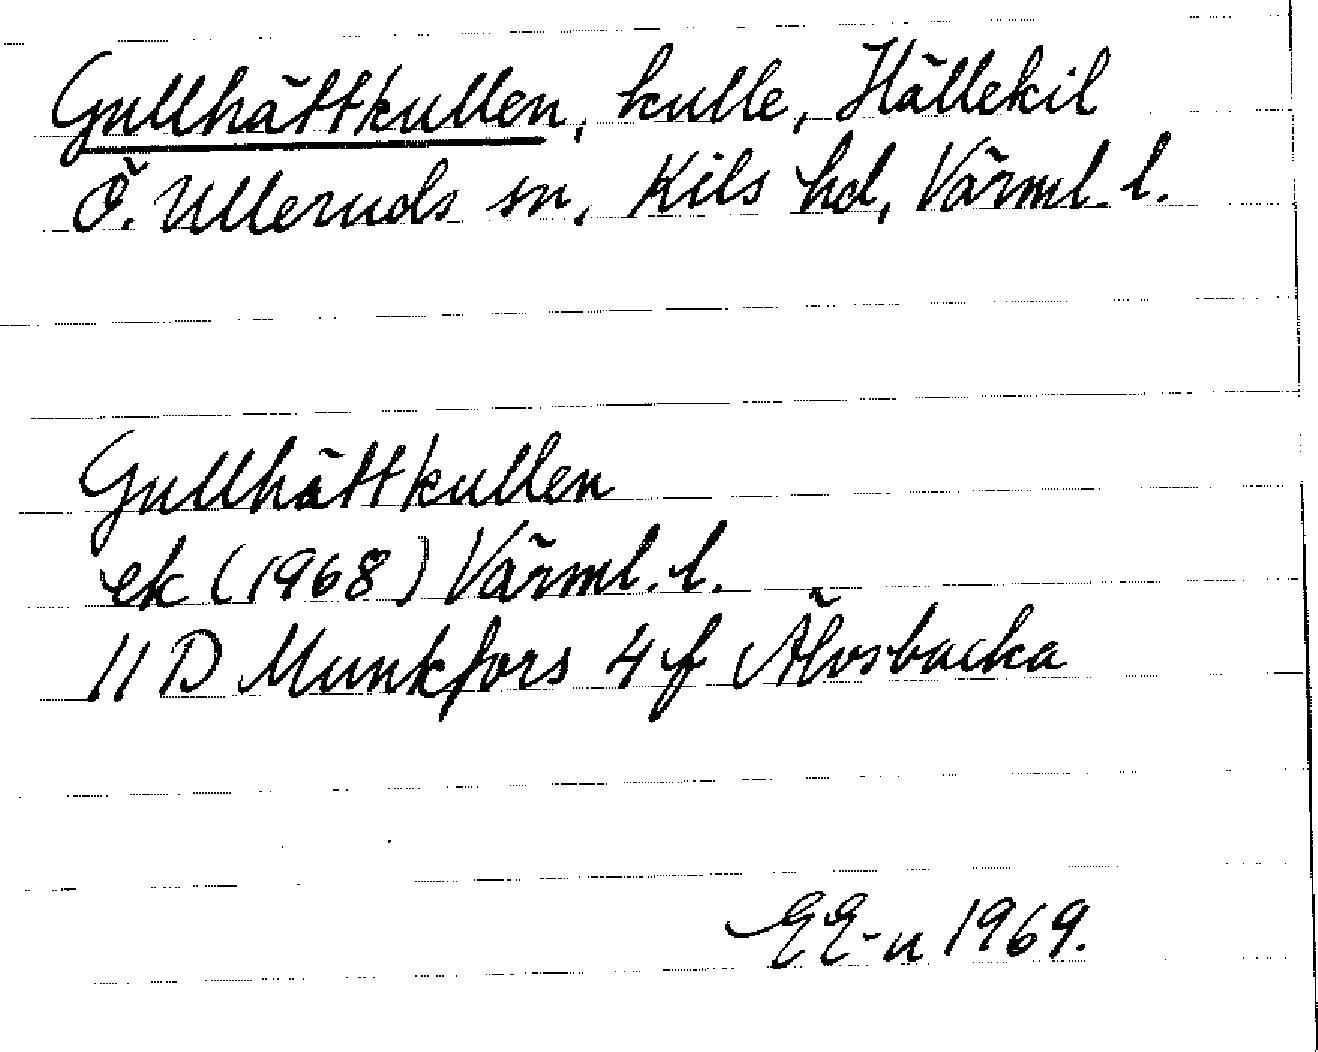 Gullhättkullen, kulle, Hällekil
Ö. Ulleruds sn, Kils hd, Värml. l.
Gullhättkullen
ek (1968) Värml. l.
11 D Munkfors 4 f Älvsbacka
EE-n 1969.